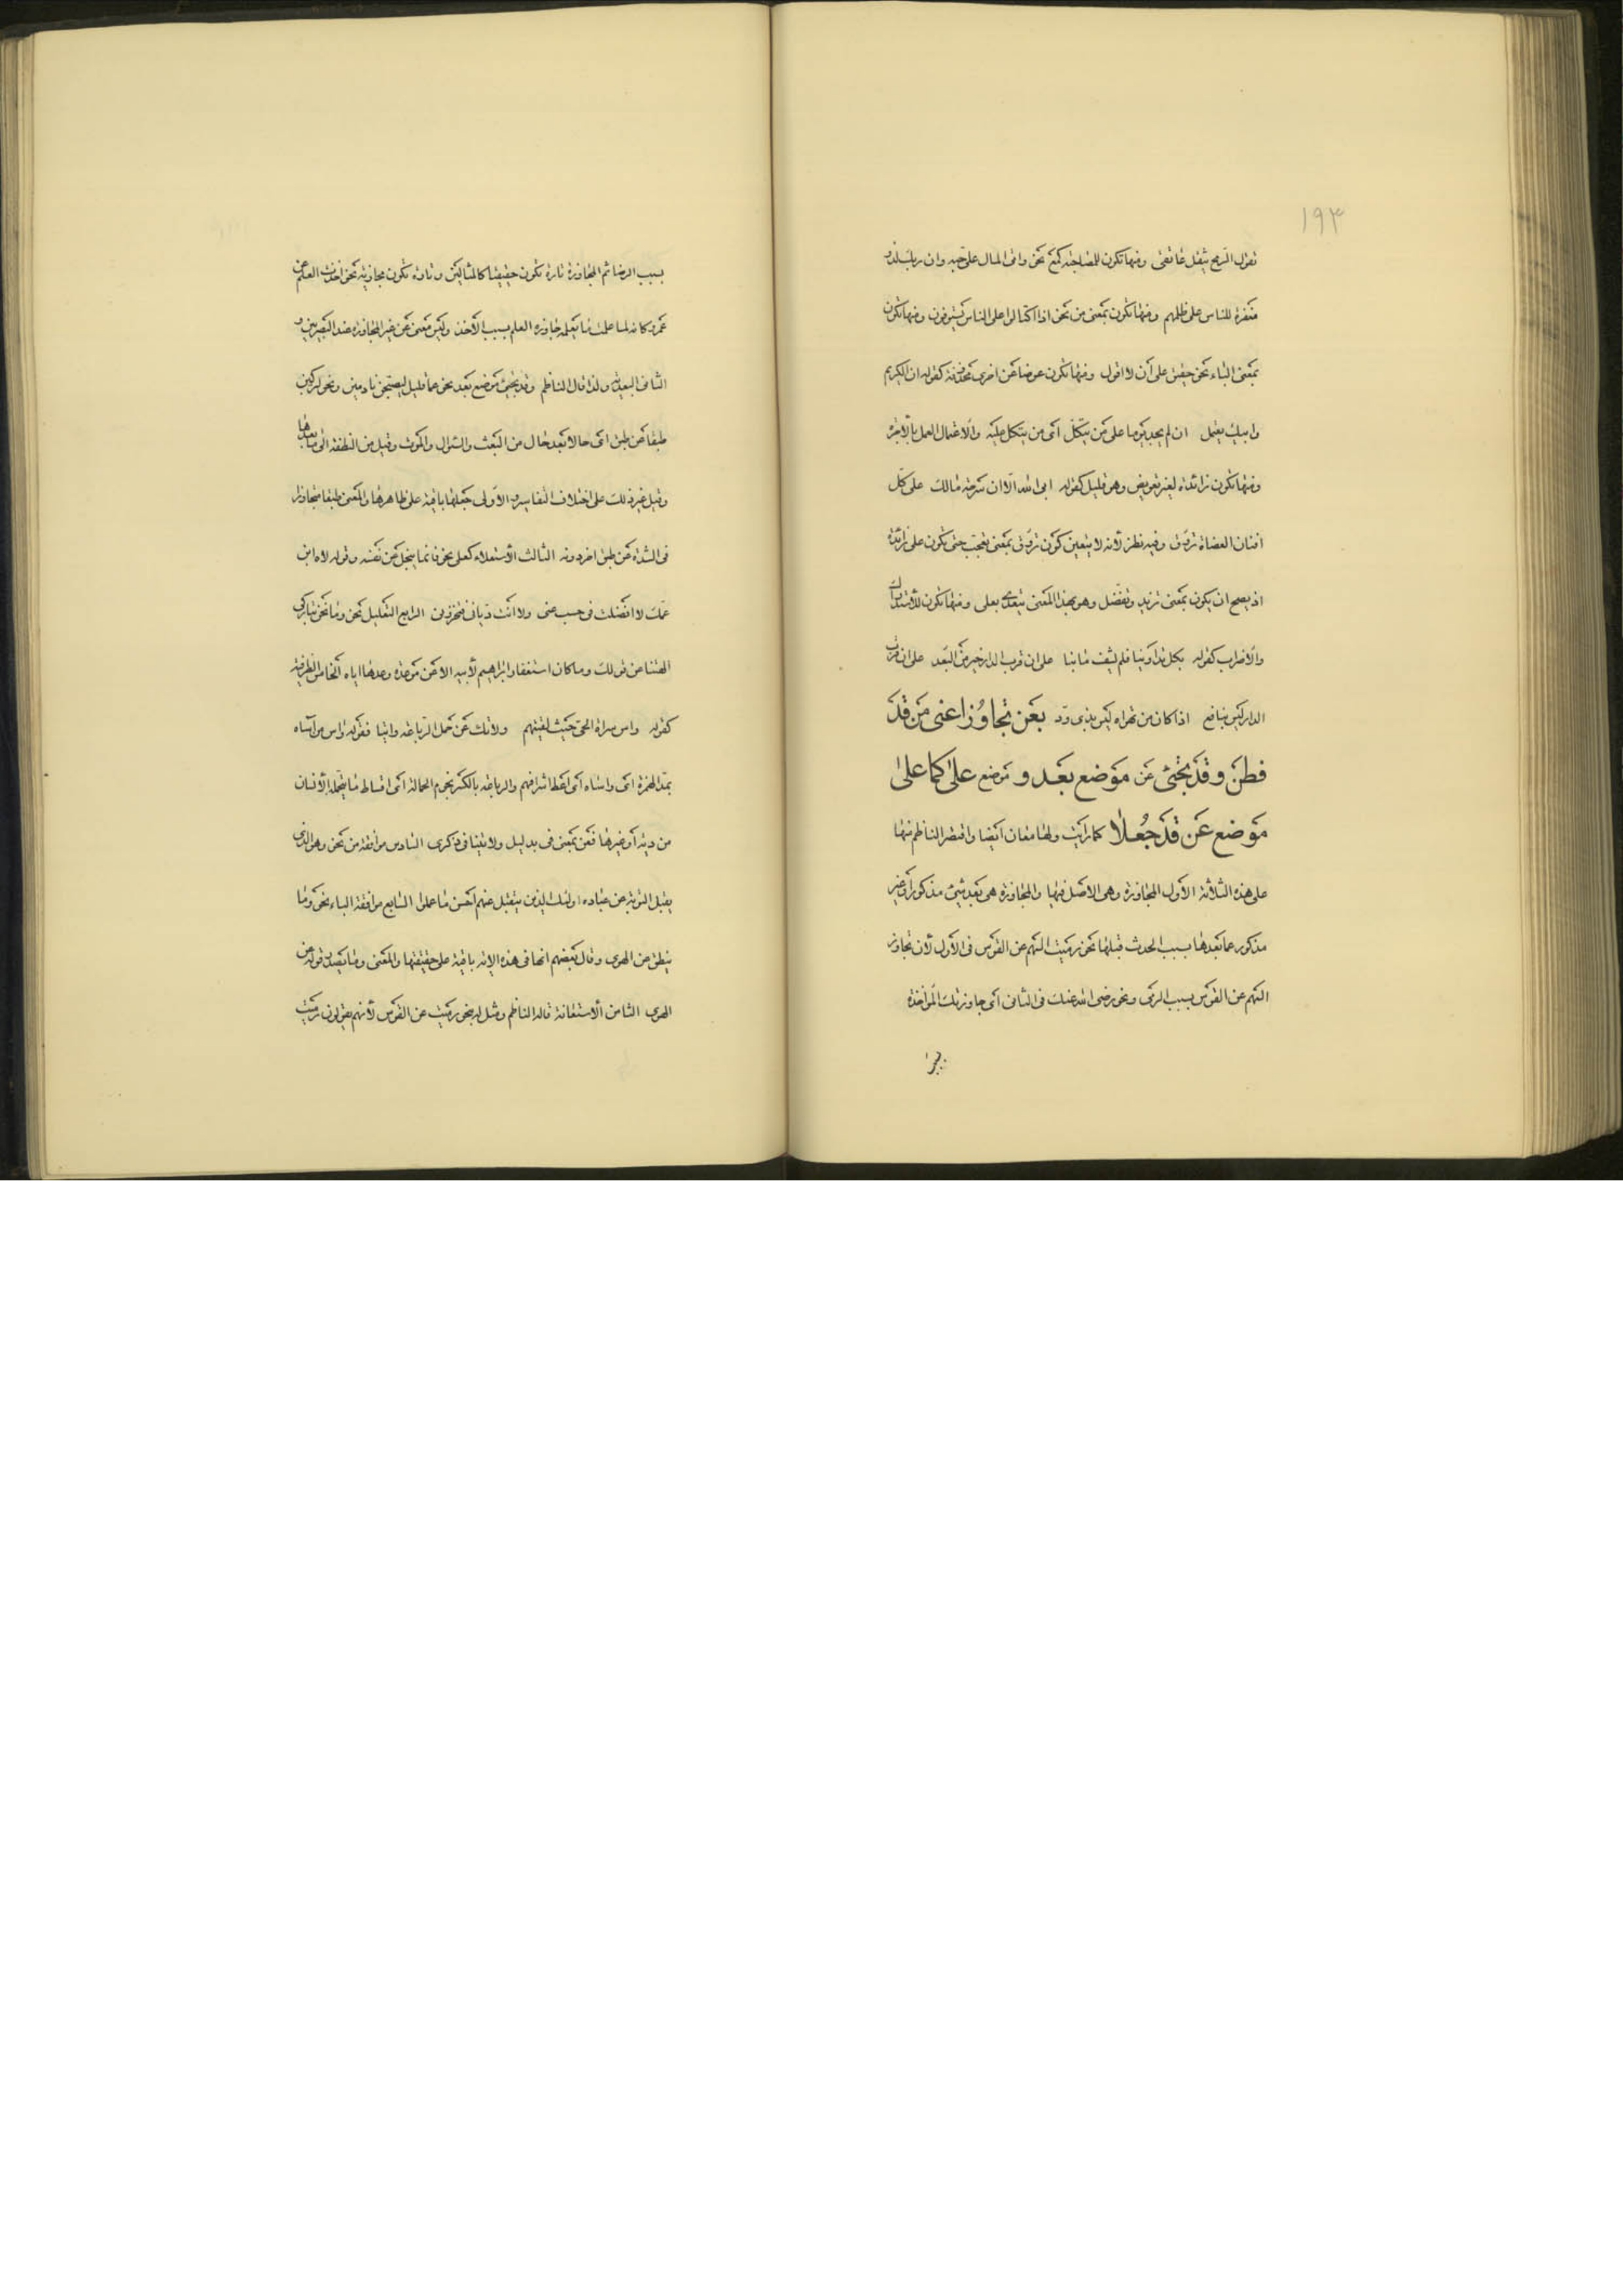 ١٩٣
تقول الرمح يثقل عاتقى ومنها تكون للمصاحبة كمع نحو واتى المال على حبه وان ربك لذو
مغفرة للناس على ظلمهم ومنها تكون بمعنى من نحو اذا اكتالوا على الناس يستوفون ومنها تكون
بمعنى الباء نحو حقيق على أن لا اقول ومنها تكون عوضا عن اخرى محذوفة كقوله ان الكريم
وابيك يعتمل ان لم يجد يوما على من يتكل اى من يتكل عليه والاعتمال العمل بالأجرة
ومنها تكون زائدة لغير تعويض وهو قليل كقوله ابى الله الا ان سرحة مالك على كل
افنان العضاة تروق وفيه نظر لأنه لا يتعين كون تروق بمعنى تعجب حتى تكون على زائدة
اذ يصح ان يكون بمعنى تزيد وتفضل وهو بهذا المعنى يتعدى بعلى ومنها تكون للأستدراك
والأضراب كقوله بكل تداوينا فلم يشف ما بنا على ان قرب الدار خير من البعد على ان قرب
الدار ليس بنافع اذا كان من تهواه ليس بذى ود بعن تجاوزا عنى من قد
فطن وقد تجئ عن موضع بعد و موضع على كما على
موضع عن قد جعلا كما رأيت ولها معان ايضا واقتصر الناظم منها
على هذه الثلاثة الأول المجاوزة وهى الاصل فيها والمجاوزة هى بعد شئ مذكور أو غير
مذكور عما بعدها بسبب الحدث قبلها نحو رميت السهم عن القوس فى الأول لأن تجاوز
السهم عن القوس بسبب الرمى ونحو رضى الله عنك فى الثانى اى جاوزتك المؤاخذة
بسبب الرضا ثم المجاوزة تارة تكون حقيقة كالمثالين وتارة تكون مجازية نحو اخذت العلم عن
عمرو كانه لما علمت ما يعلمه جاوزه العلم بسبب الأخذ وليس معنى عن غير المجاوزة عند البصريين و
الثانى البعدية ولذا قال الناظم وقد تجئ موضع بعد نحو عما قليل ليصبحن نادمين ونحو لتركبن
طبقا عن طبق اى حالا بعد حال من البعث والسؤال والموت وقيل من النطفة الى ما بعدها
وقيل غير ذلك على اختلاف التفاسير والاولى جعلها باقية على ظاهرها والمعنى طبقا متجاوزا
فى الشدة عن طبق اخر دونه الثالث الأستعلاء كعلى نحو فانما يبخل عن نفسه وقوله لاه ابن
عمك لا افضلت فى حسب عنى ولا انت ديانى فتخزونى الرابع التعليل نحو وما نحن بتاركى
الهتنا عن قولك وما كان استغفار ابراهيم لأبيه الا عن موعدة وعدها اياه الخامس الظرفية
كقوله واس سراة الحى حيث لقيتهم ولاتك عن حمل الرباعة وانيا فقوله واس من آساه
بمد الهمزة اى واساه اى اعط اشرافهم والرباعة بالكسر نجوم الحمالة اى اقساط ما يتحمله الأنسان
من دية أو غيرها فعن بمعنى فى بدليل ولا تنيا فى ذكرى السادس موافقة من نحو وهو الذى
يقبل التوبة عن عباده اولئك الذين يتقبل عنهم احسن ما عملوا السابع موافقة الباء نحو وما
ينطق عن الهوى وقال بعضهم انها فى هذه الاية باقية على حقيقتها والمعنى وما يصدر قوله عن
الهوى الثامن الأستعانة قاله الناظم ومثل له بنحو رميت عن القوس لأنهم يقولون رميت